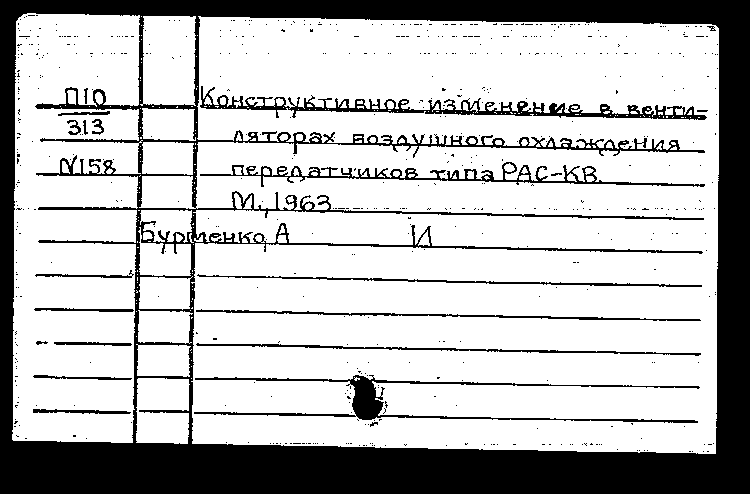 П10 Конструктивное изменение в венти-
313 ляторах воздушного охлаждения
N158 передатчиков типа РАС-КВ.
М., 1963
Бурменко, А И